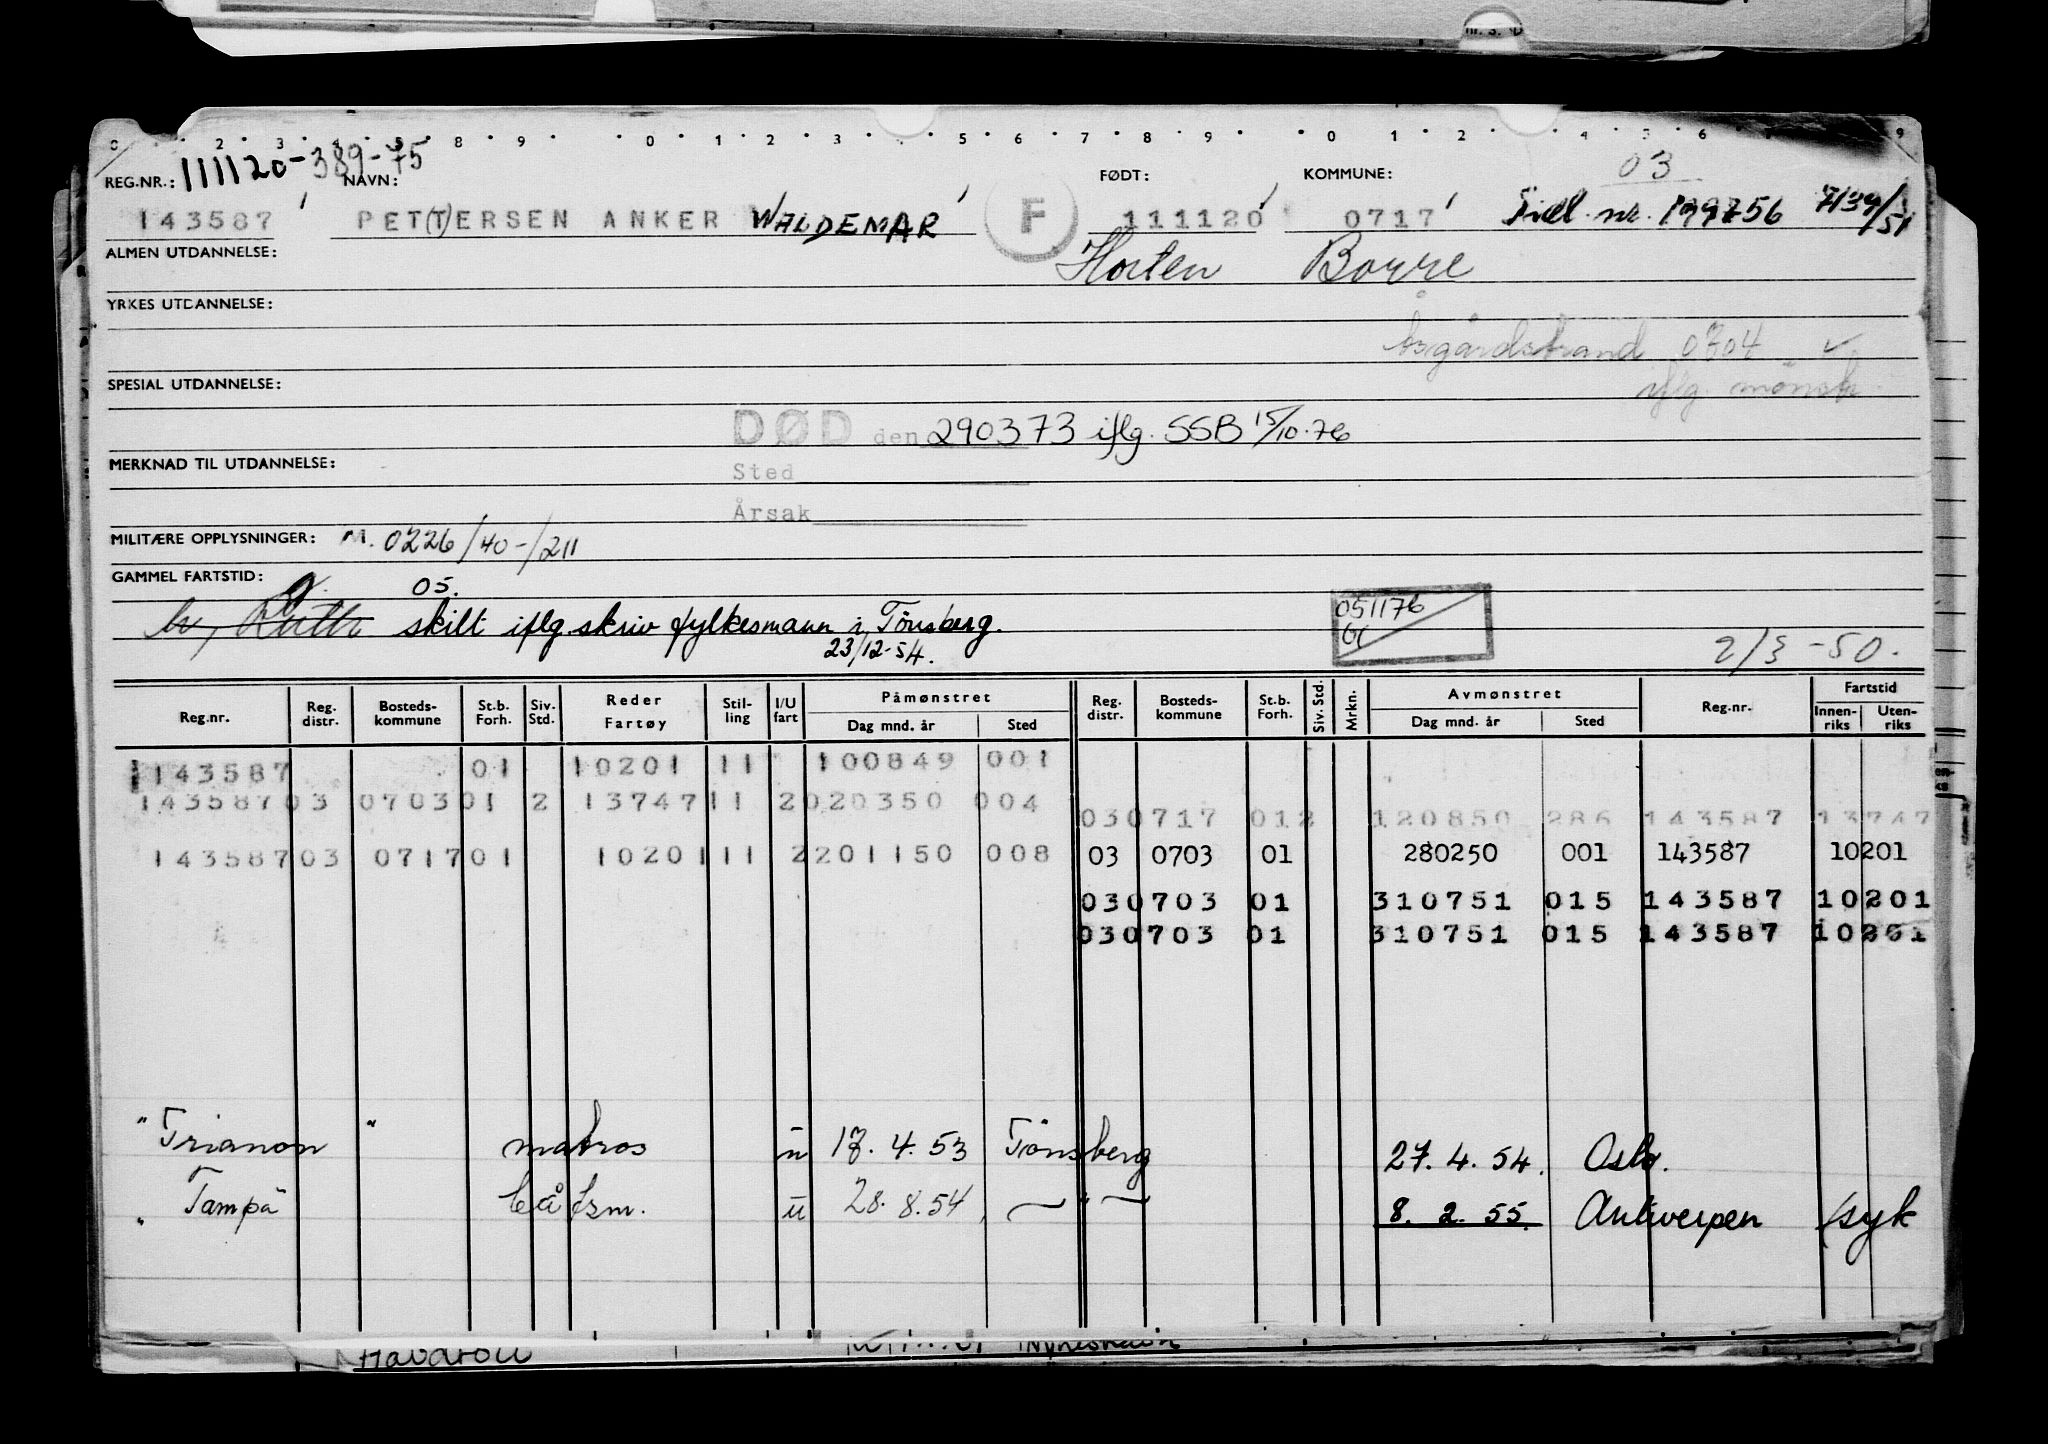 nr. S.
0 2 3 4 5 8 9 0 1 2 3 5 6 7 8 9 0 1 2 4 5 6 9
111120-389-75
REG.NR.: NAVN: FØDT: KOMMUNE: 03
143587 PET(T)ERSEN ANKER WALDEMAR F 111120 0717 Tidl. nr. 139756 7134/51
ALMEN UTDANNELSE: Horten Borre
YRKES UTDANNELSE:
Åsgårdstrand 0704
SPESIAL UTDANNELSE: iflg. mønstr.
DØD den 290373 iflg. SSB 15/10.76
MERKNAD TIL UTDANNELSE: Sted
Årsak
MILITÆRE OPPLYSNINGER: M. 0226/40-/211
GAMMEL FARTSTID: 05.
051176
h, Ruth skilt iflg. skriv fylkesmann i Tönsberg.
23/12-54.
2/3-50.
Reg.nr. Reg. distr. Bosteds- kommune St.b. Forh. Siv. Std. Reder Fartøy Stil- ling I/U fart Påmønstret Dag mnd. år Sted Reg. distr. Bosteds- kommune St.b. Forh. Siv. Std. Mrkn. Avmønstret Dag mnd. år Sted Reg.nr. Fartstid Innen- riks Uten- riks
143587 01 10201 11 100849 001
143587 03 0703 01 2 13747 11 2 020350 004
030717 012 120850 286 143587 13747
143587 03 0717 01 10201 11 2 201150 008 03 0703 01 280250 001 143587 10201
030703 01 310751 015 143587 10201
030703 01 310751 015 143587 10201
"Trianon" matros u 17.4.53 Tönsberg 27.4.54. Oslo.
"Tampa" båtsm. u 28.8.54 —"— 8.2.55. Antwerpen /syk